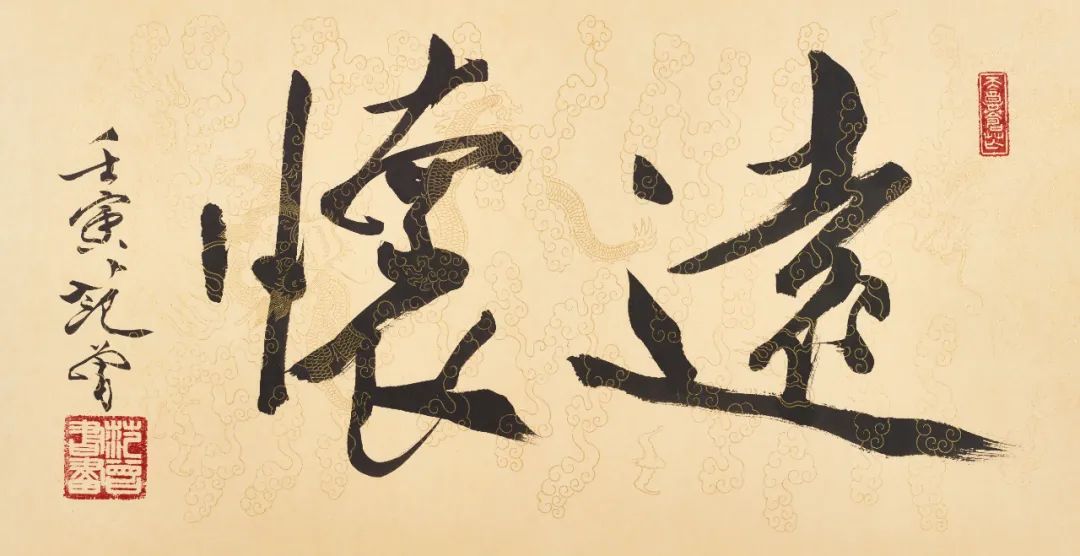 遠懷
壬寅范曾
范曾書畫